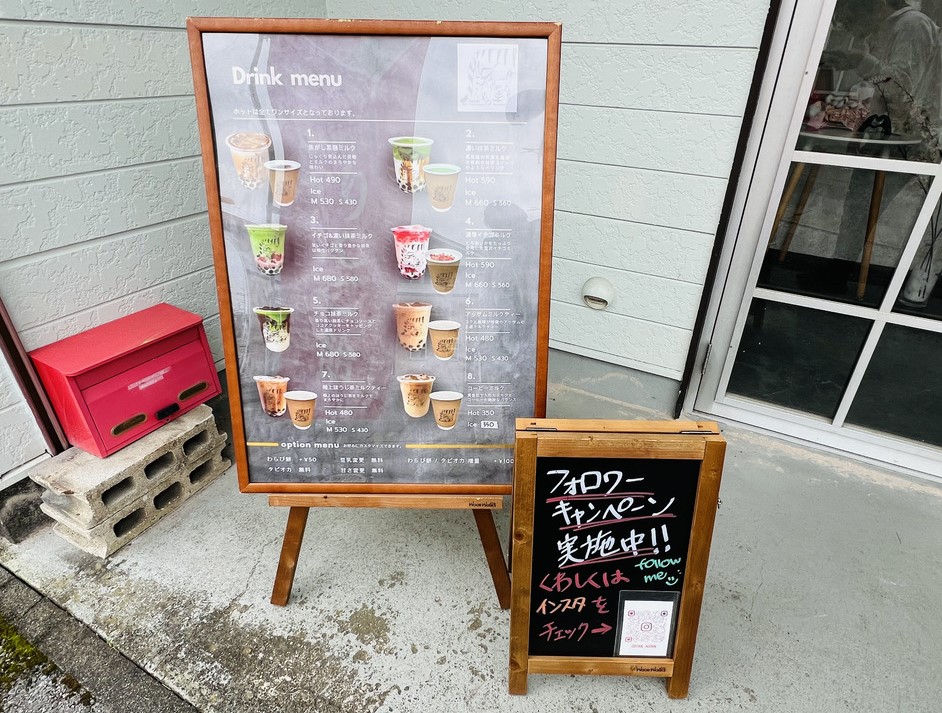 Drink menu
ホットは全てワンサイズとなっております。
1.
焦がし黒糖ミルク
Hot 490
Ice
M 530 S 430
2.
濃い抹茶ミルク
Hot 590
Ice
M 660 S 560
3.
イチゴ&濃い抹茶ミルク
Ice
M 680 S 580
4.
Hot 590
Ice
M 660 S 560
5.
チョコ抹茶ミルク
Ice
M 680 S 580
6.
アッサムミルクティー
Hot 480
Ice
M 530 S 430
7.
極上ほうじ茶ミルクティー
Hot 480
Ice
M 530 S 430
8.
コーヒーミルク
Hot 350
Ice
option menu お好みにカスタマイズできます。
わらび餅 +¥50 豆乳変更 無料 わらび餅 / タピオカ 増量 +¥100
タピオカ 無料 甘さ変更 無料
フォロワー
キャンペーン
実施中!!
follow
me
くわしくは
インスタを
チェック→